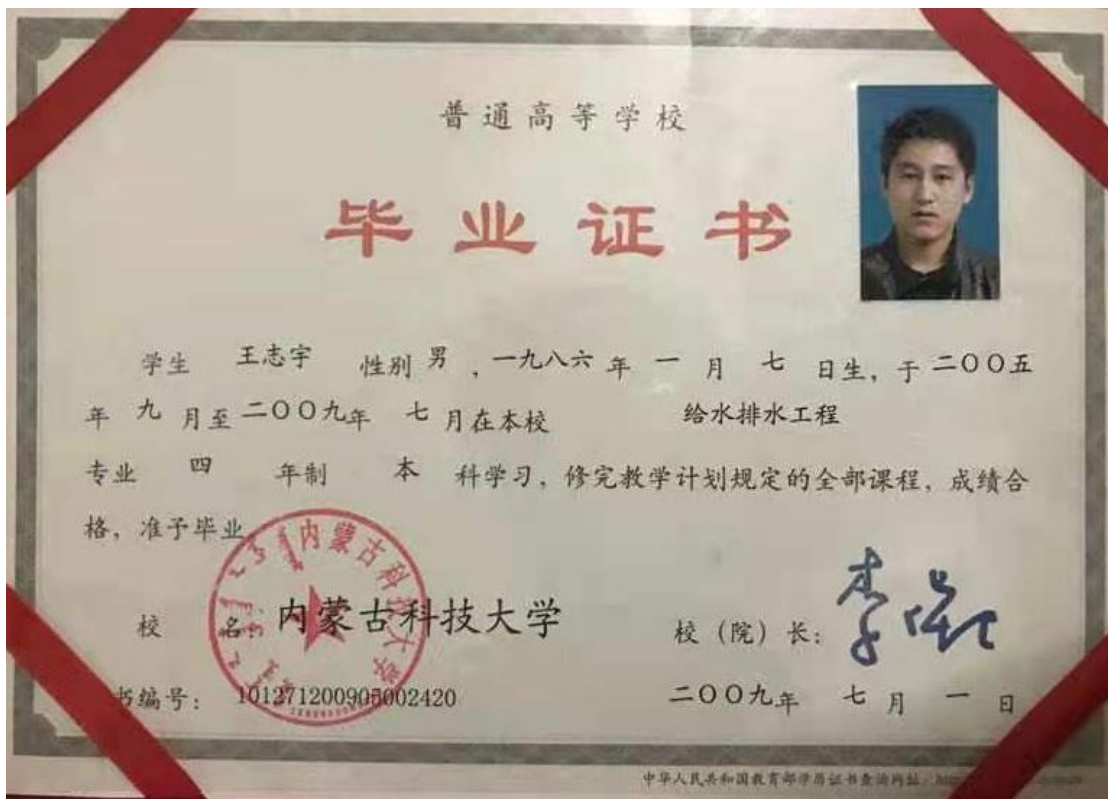 普通高等学校
毕业证书
学生 王志宇 性别 男 ，一九八六 年 一 月 七 日生，于 二〇〇五
年 九 月至 二〇〇九年 七 月在本校 给水排水工程
专业 四 年制 本 科学习，修完教学计划规定的全部课程，成绩合
格，准予毕业
内蒙古科技大学
校 名：内蒙古科技大学 校（院）长：李
书编号：101271200905002420 二〇〇九年 七 月 一 日
中华人民共和国教育部学历证书查询网址：http